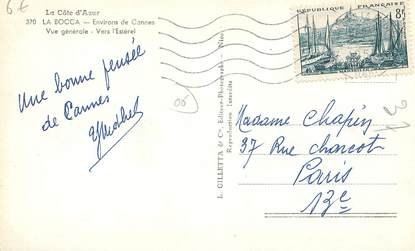 6 €
La Côte d'Azur
370 LA BOCCA — Environs de Cannes
Vue générale - Vers l'Estérel
RÉPUBLIQUE FRANÇAISE
8f
Une bonne pensée
de Cannes
L. GILLETTA & Cie, Editeur-Photographe - Nice
Reproduction Interdite
Madame Chapin
37 Rue Charcot
Paris
13e